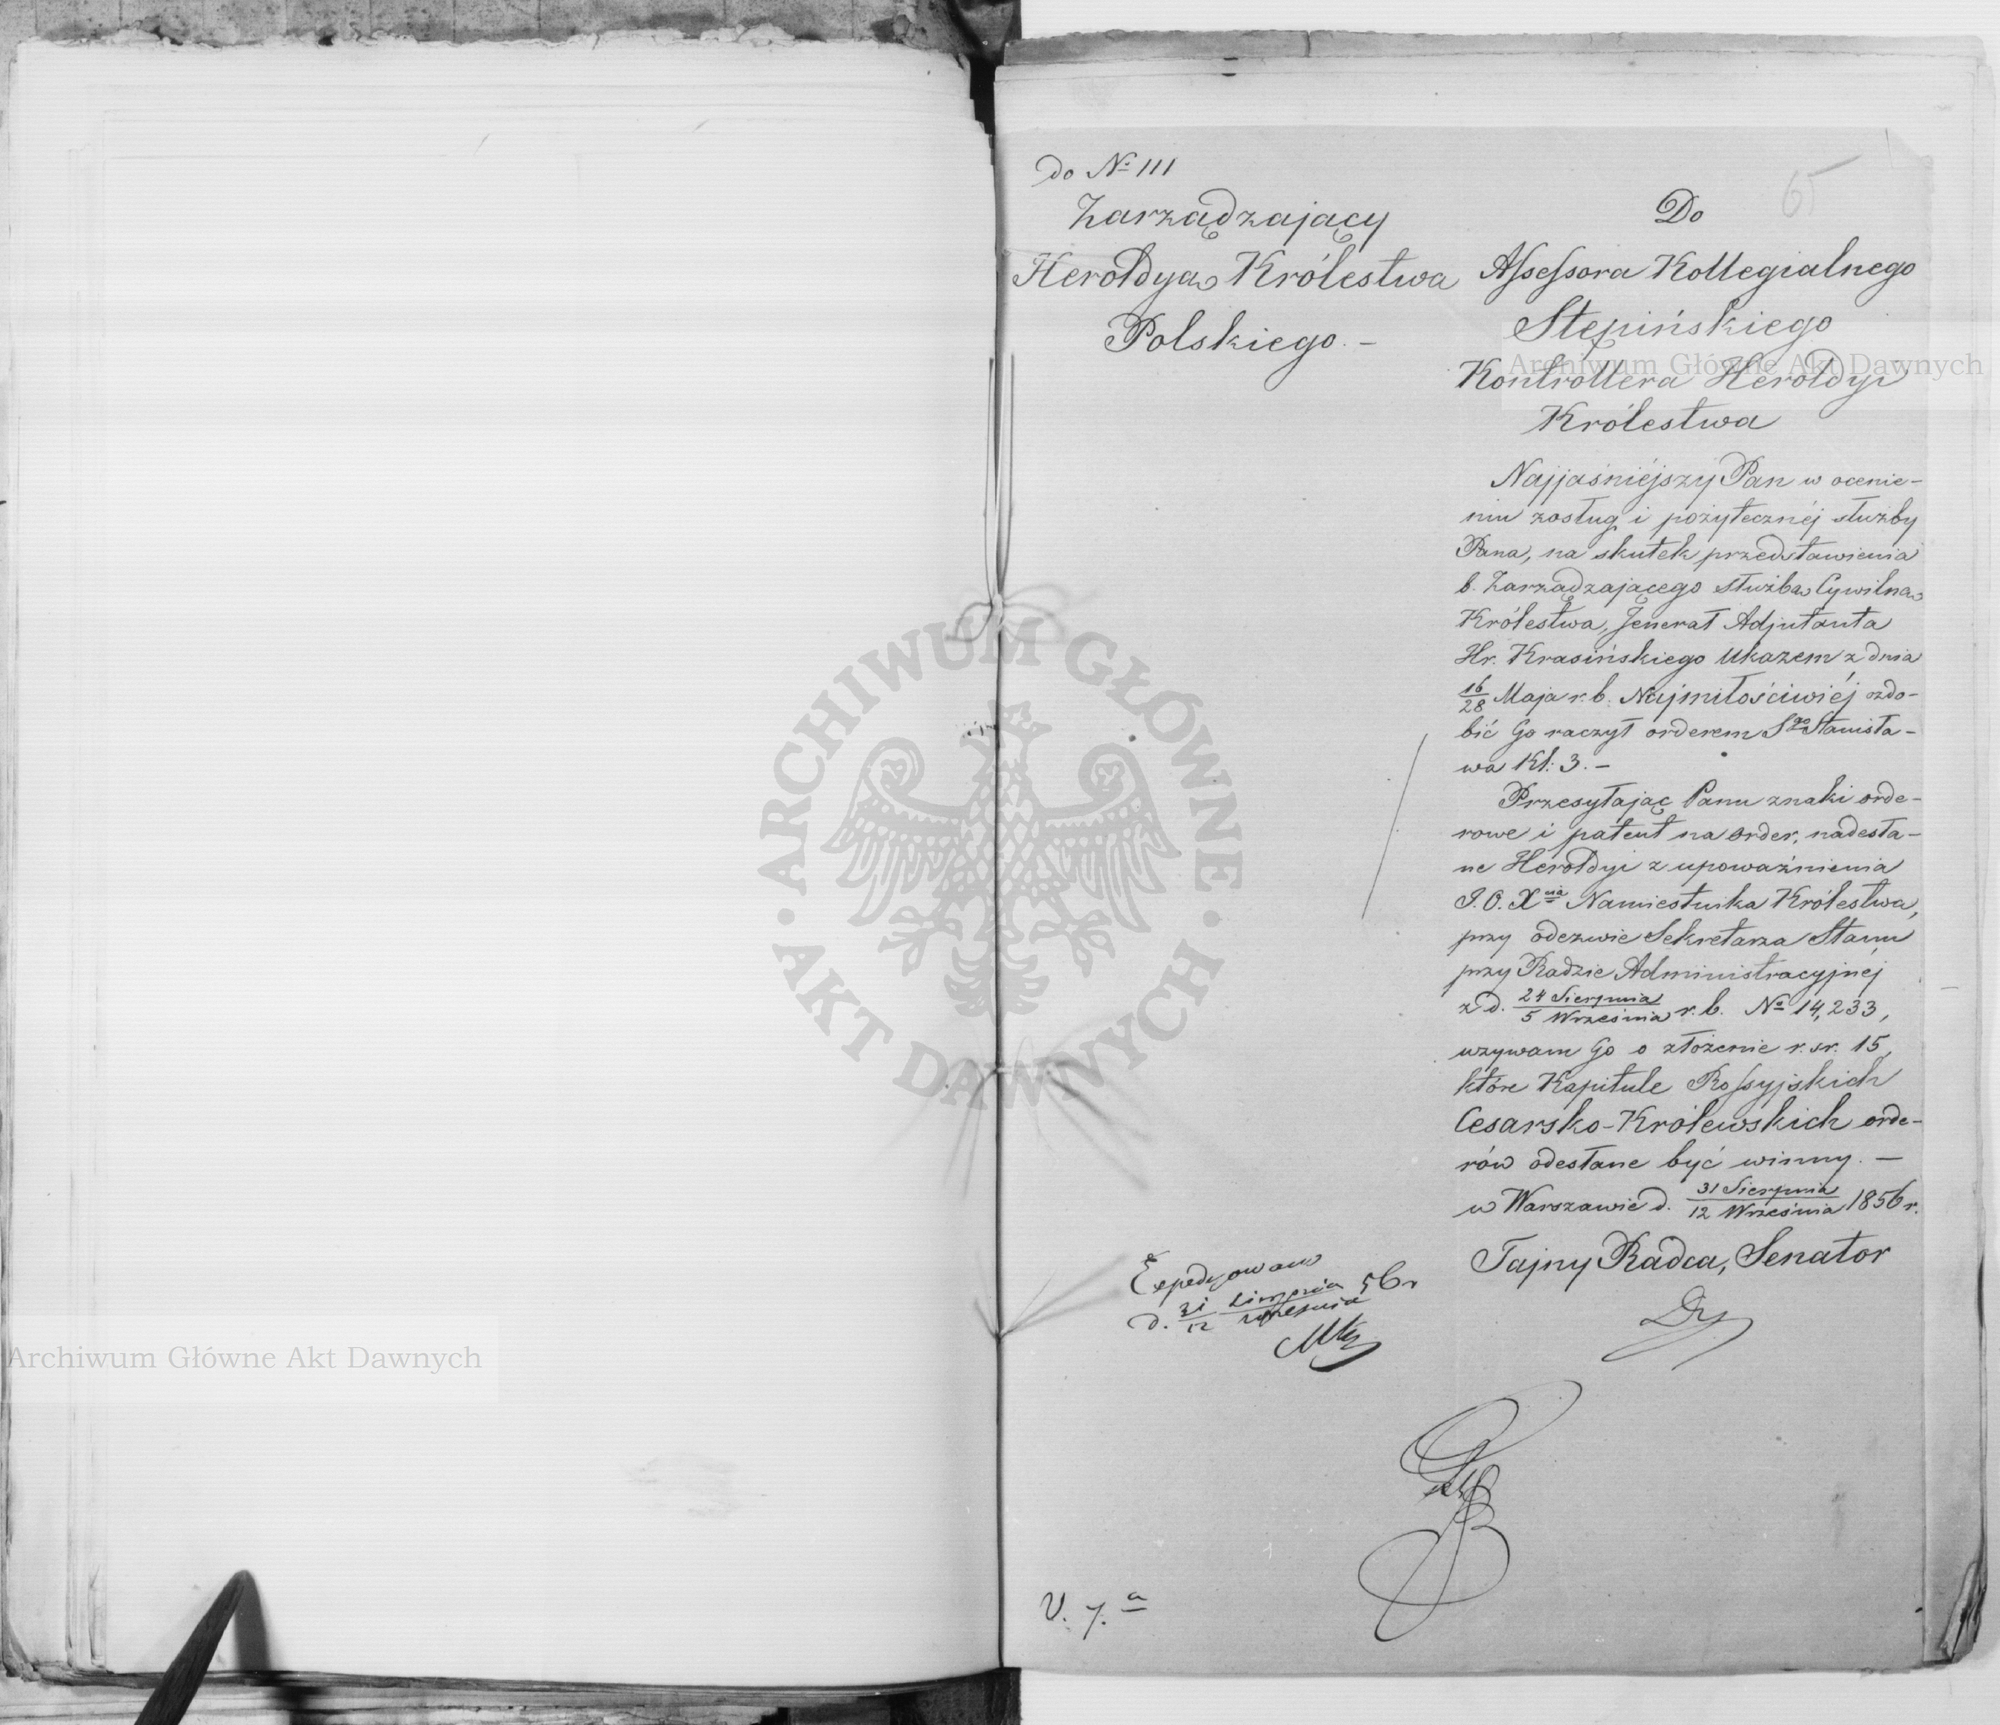 do № 111
Zarządzający
Heroldyą Królestwa
Polskiego. –
65
Do
Assessora Kollegialnego
Stępińskiego
Kontrollera Heroldyi
Królestwa
Najjaśniéjszy Pan w ocenie-
niu zasług i pożytecznéj służby
Pana, na skutek przedstawienia
b. Zarządzającego służbą Cywilną
Królestwa, Jenerał Adjutanta
Hr. Krasińskiego Ukazem z dnia
16/28 Maja r. b. Najmiłościwiéj ozdo-
bić Go raczył orderem Sgo Stanisła-
wa Kl: 3. –
Przesyłając Panu znaki orde-
rowe i patent na order, nadesła-
ne Heroldyi z upoważnienia
J. O. Xcia Namiestnika Królestwa,
przy odezwie Sekretarza Stanu
przy Radzie Administracyjnéj
z d. 24 Sierpnia/5 Września r. b. № 14,233,
wzywam Go o złożenie r. sr. 15,
które Kapitule Rossyjskich
Cesarsko-Królewskich orde-
rów odesłane być winny. —
w Warszawie d. 31 Sierpnia/12 Września 1856 r.
Tajny Radca, Senator
Expedyowano
d. 31/12 Sierpnia/Września 56 r
V. 7. a
Archiwum Główne Akt Dawnych
Archiwum Główne Akt Dawnych
· ARCHIWUM GŁÓWNE ·
AKT DAWNYCH